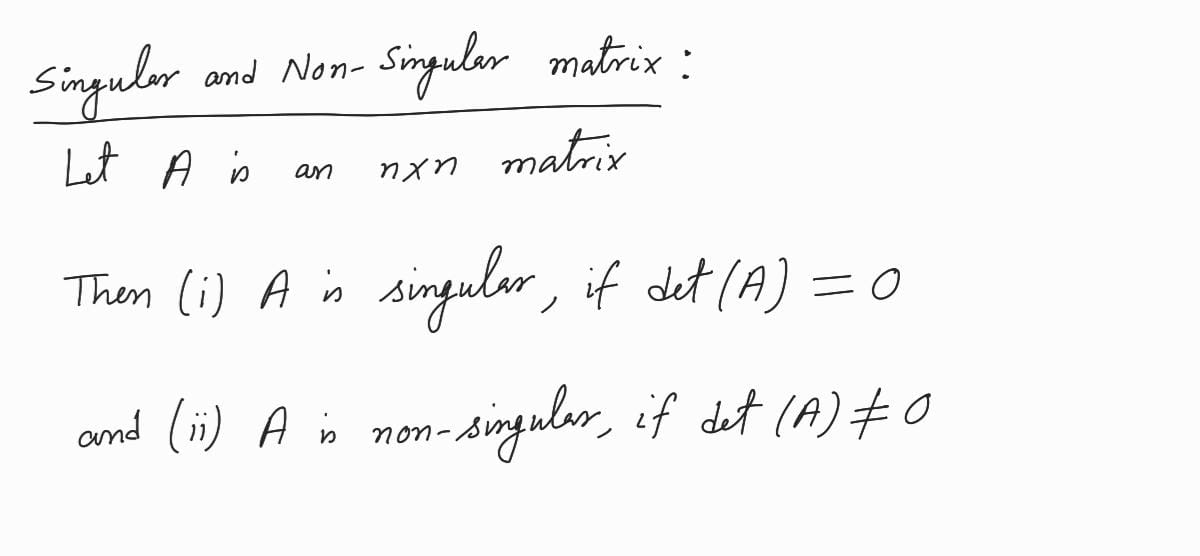 Singular and Non-Singular matrix :
Let A is an n×n matrix
Then (i) A is singular, if det(A) = 0
and (ii) A is non-singular, if det (A) ≠ 0